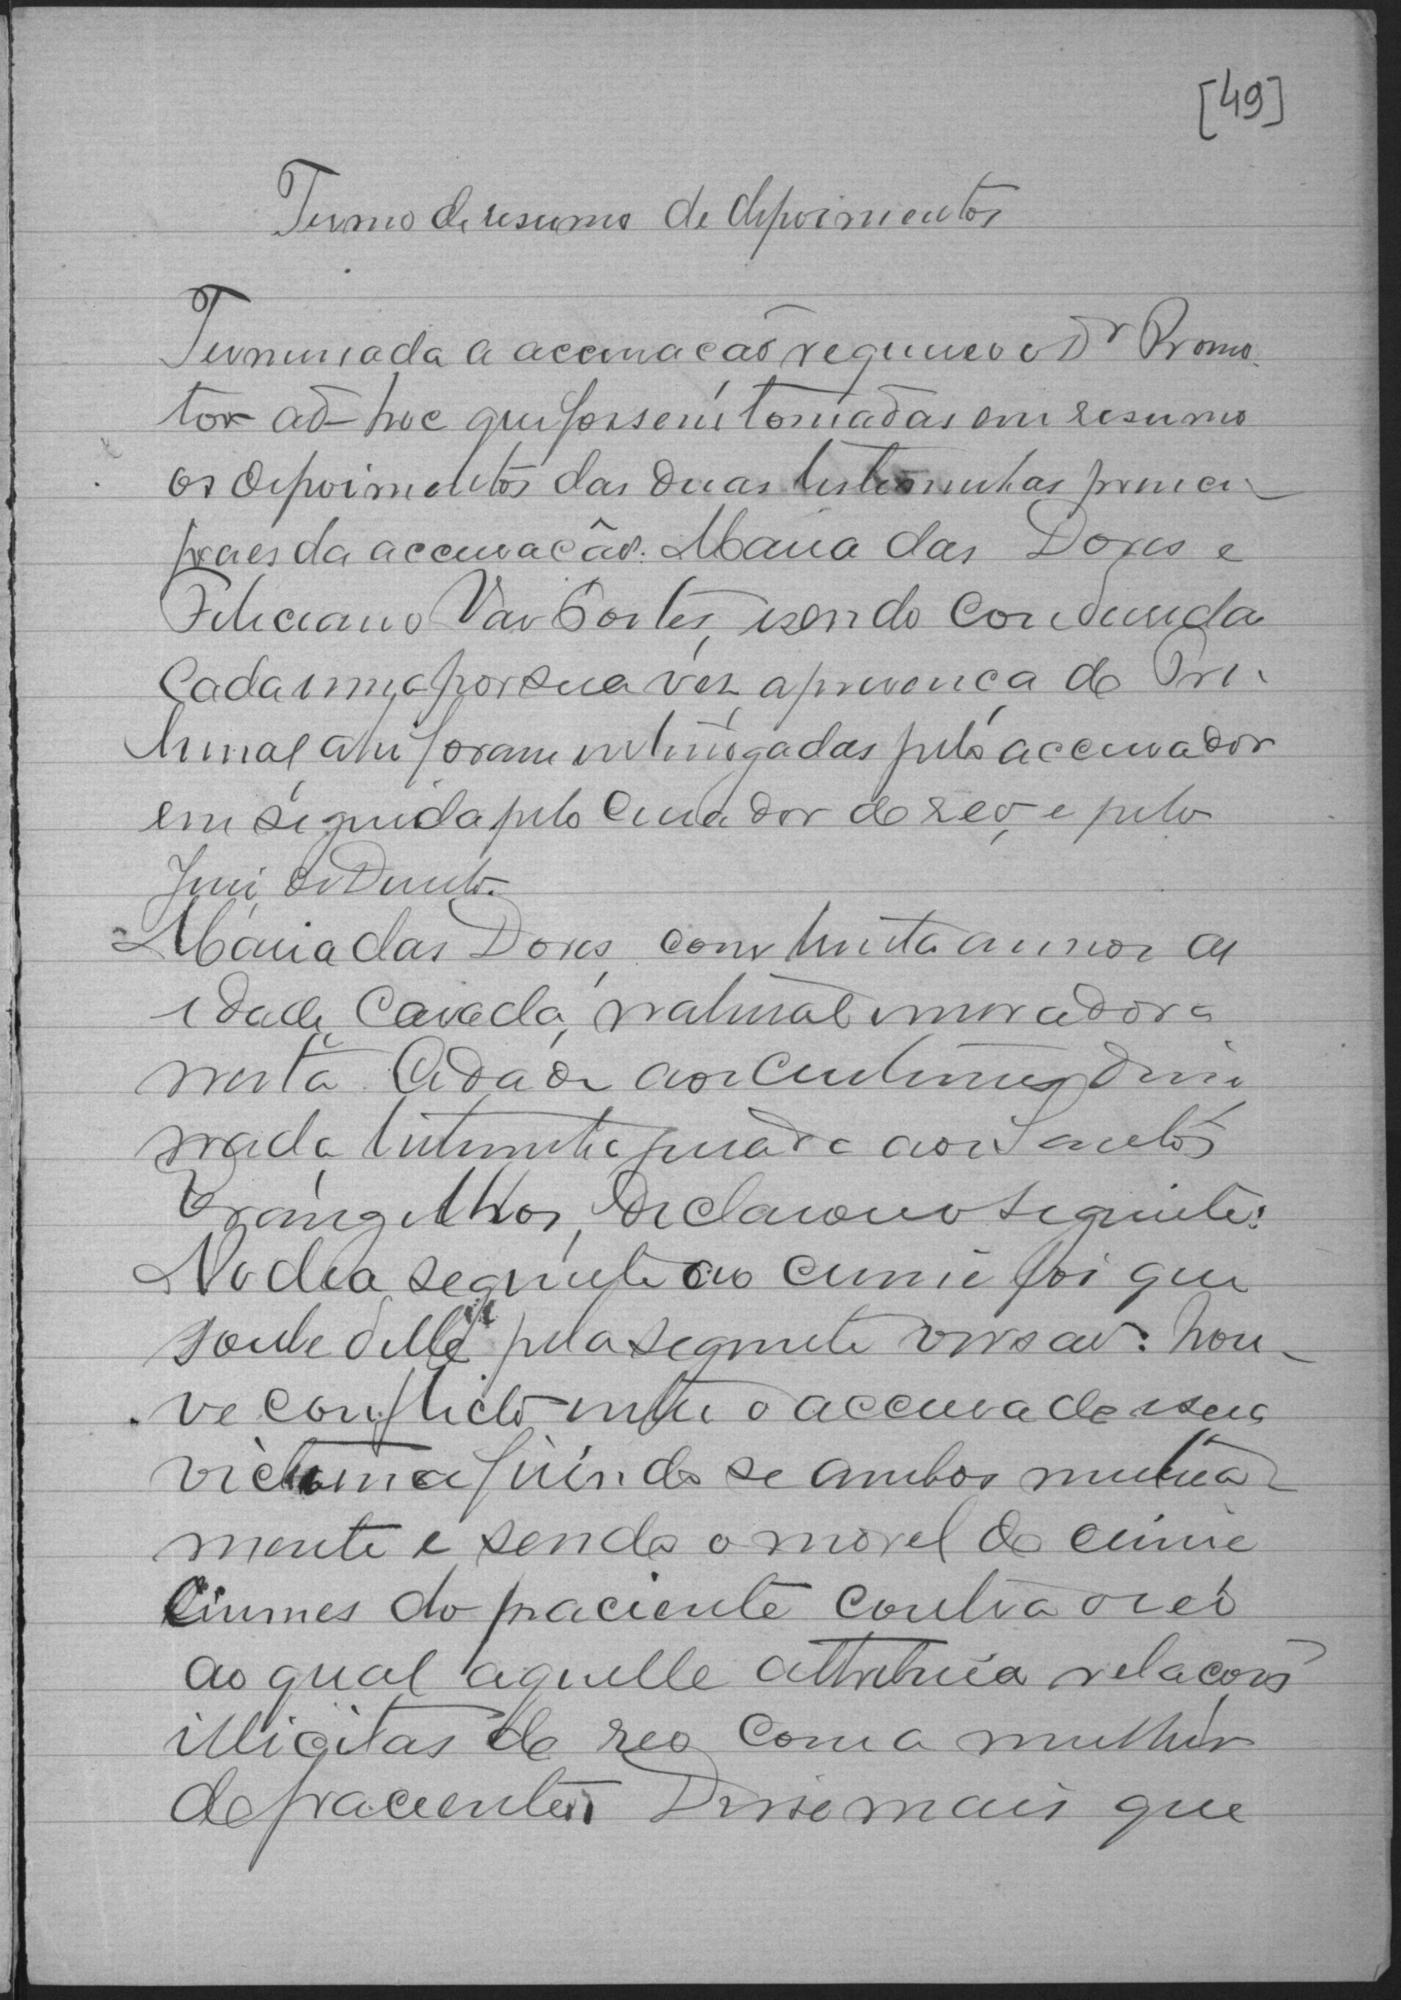 [49]
Termo de resumo de depoimentos
Terminada a accusacão requereu o Dr Promo-
tor ad-hoc que fossem tomadas em resumo
os depoimentos das duas testemunhas princi-
paes da accusacão: Maria das Dores e
Feliciano Vas Cortes, sendo conduzida
cada uma por sua vez a presença do Tri-
bunal ahi foram interrogadas pelo accusador
em seguida pelo curador do reo, e pelo
Juiz de Direito.
Maria das Dores, com trinta annos de
idade, casada, natural e moradora
nesta cidade aos costumes disse
nada testemunha jurada aos Santos
Evangelhos, declarou o seguinte:
No dia seguinte ao crime foi que
soube delle pela seguinte versão: hou-
ve conflicto entre o accusado e sua
victima ferindo se ambos mutua-
mente e sendo o movel do crime
ciumes do paciente contra o reo
ao qual aquelle attribuia relacões
illicitas do reo com a mulher
do paciente. Disse mais que